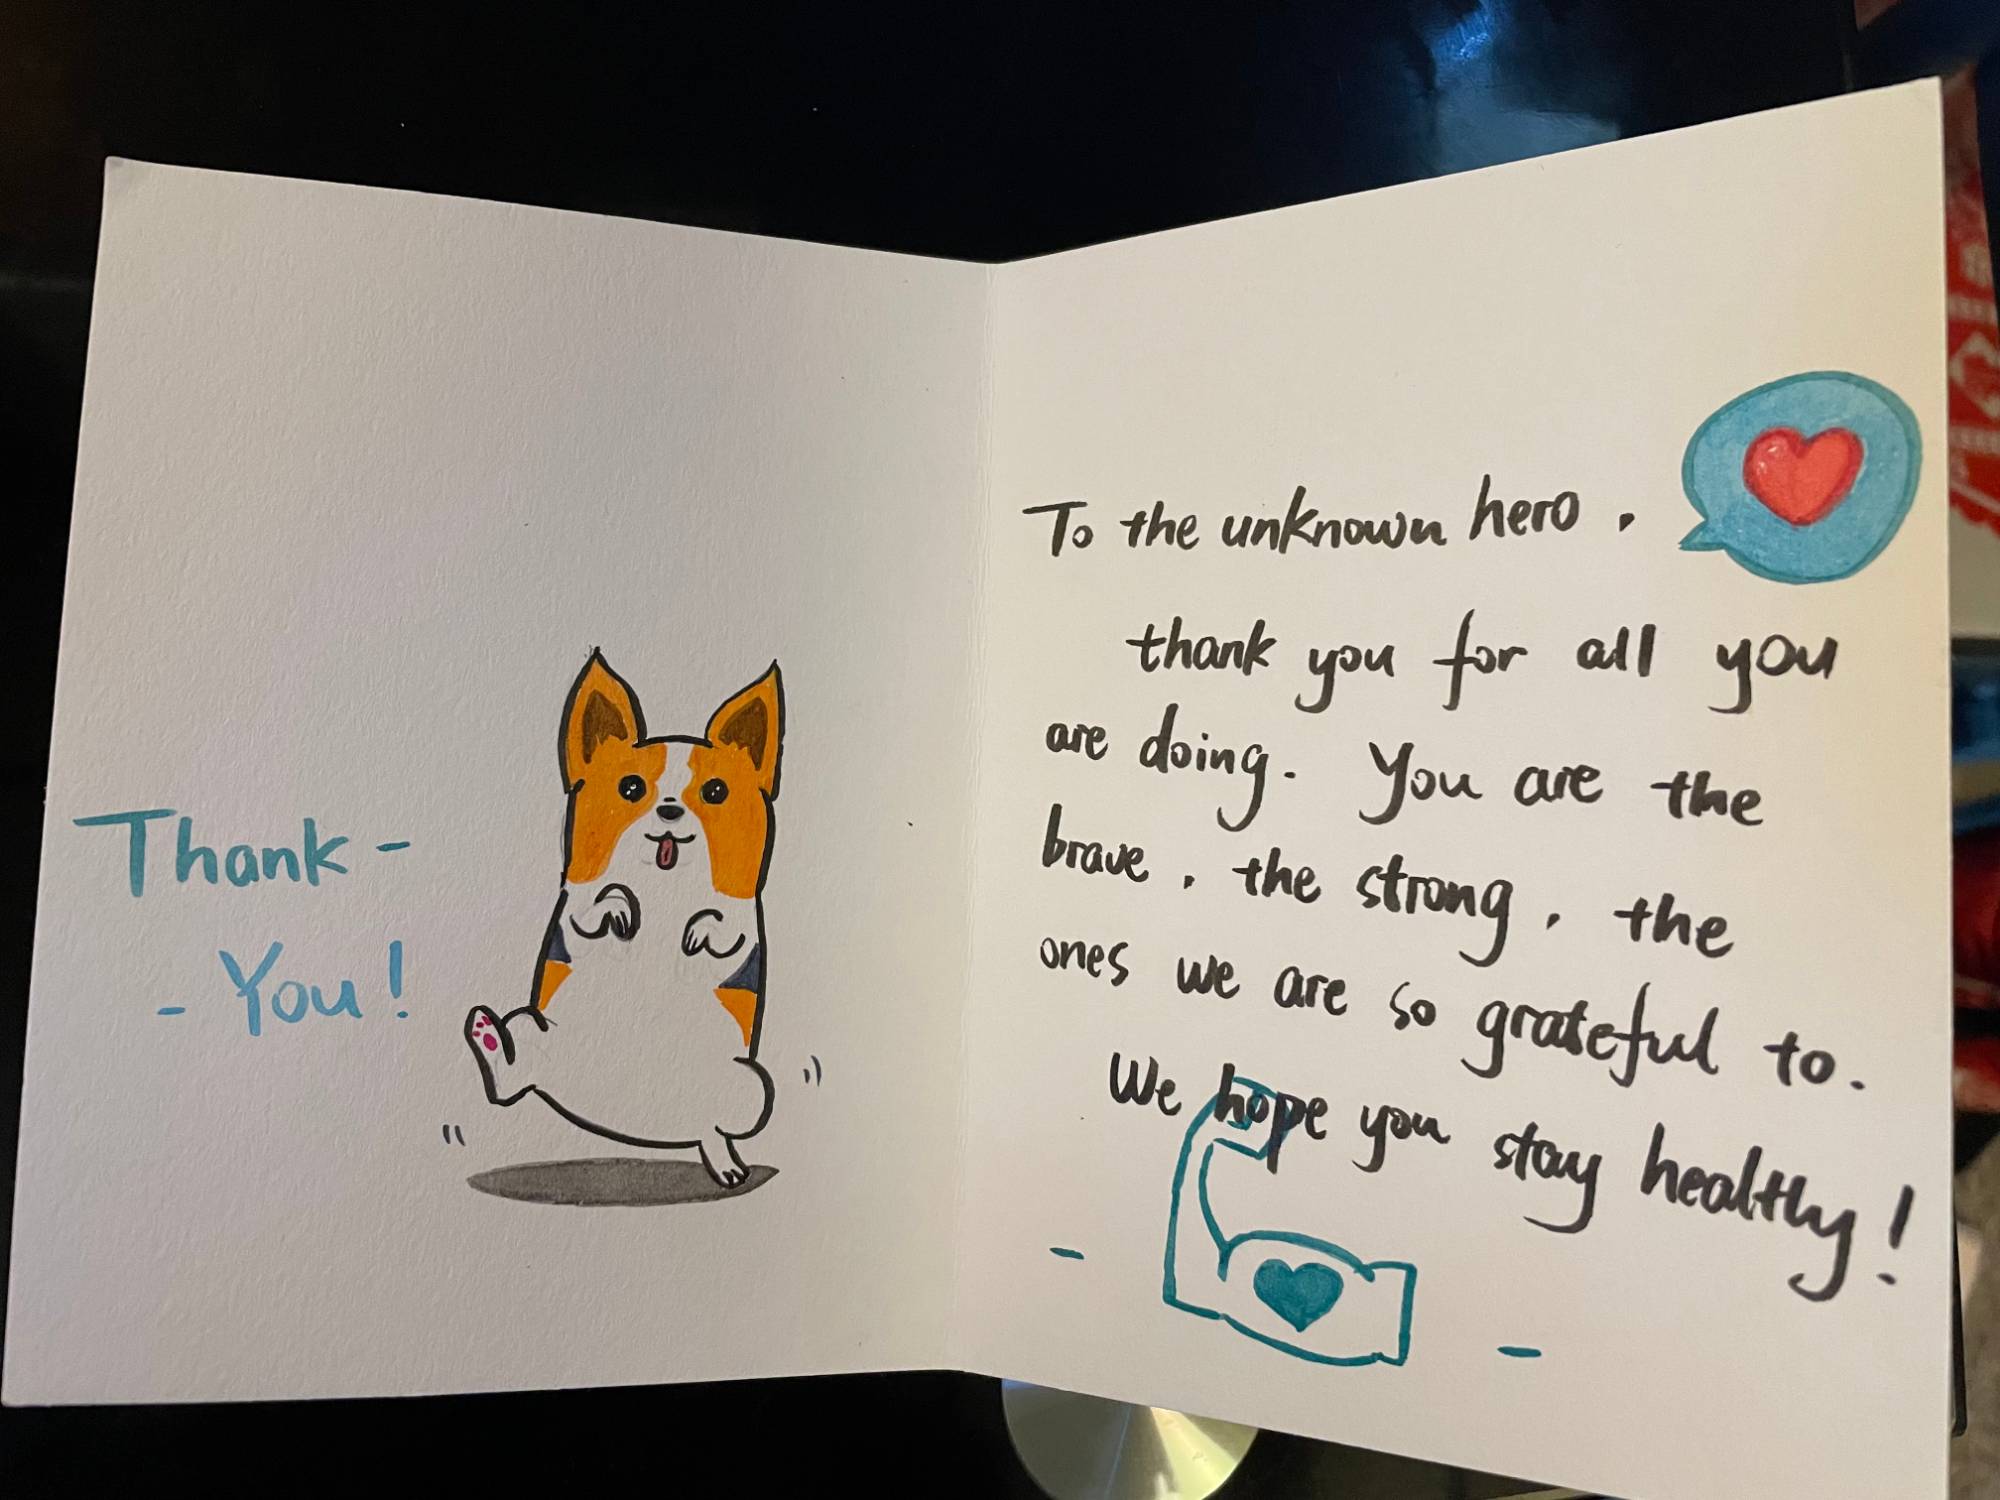 Thank -
- You!
To the unknown hero,
thank you for all you
are doing. You are the
brave, the strong, the
ones we are so grateful to.
We hope you stay healthy!